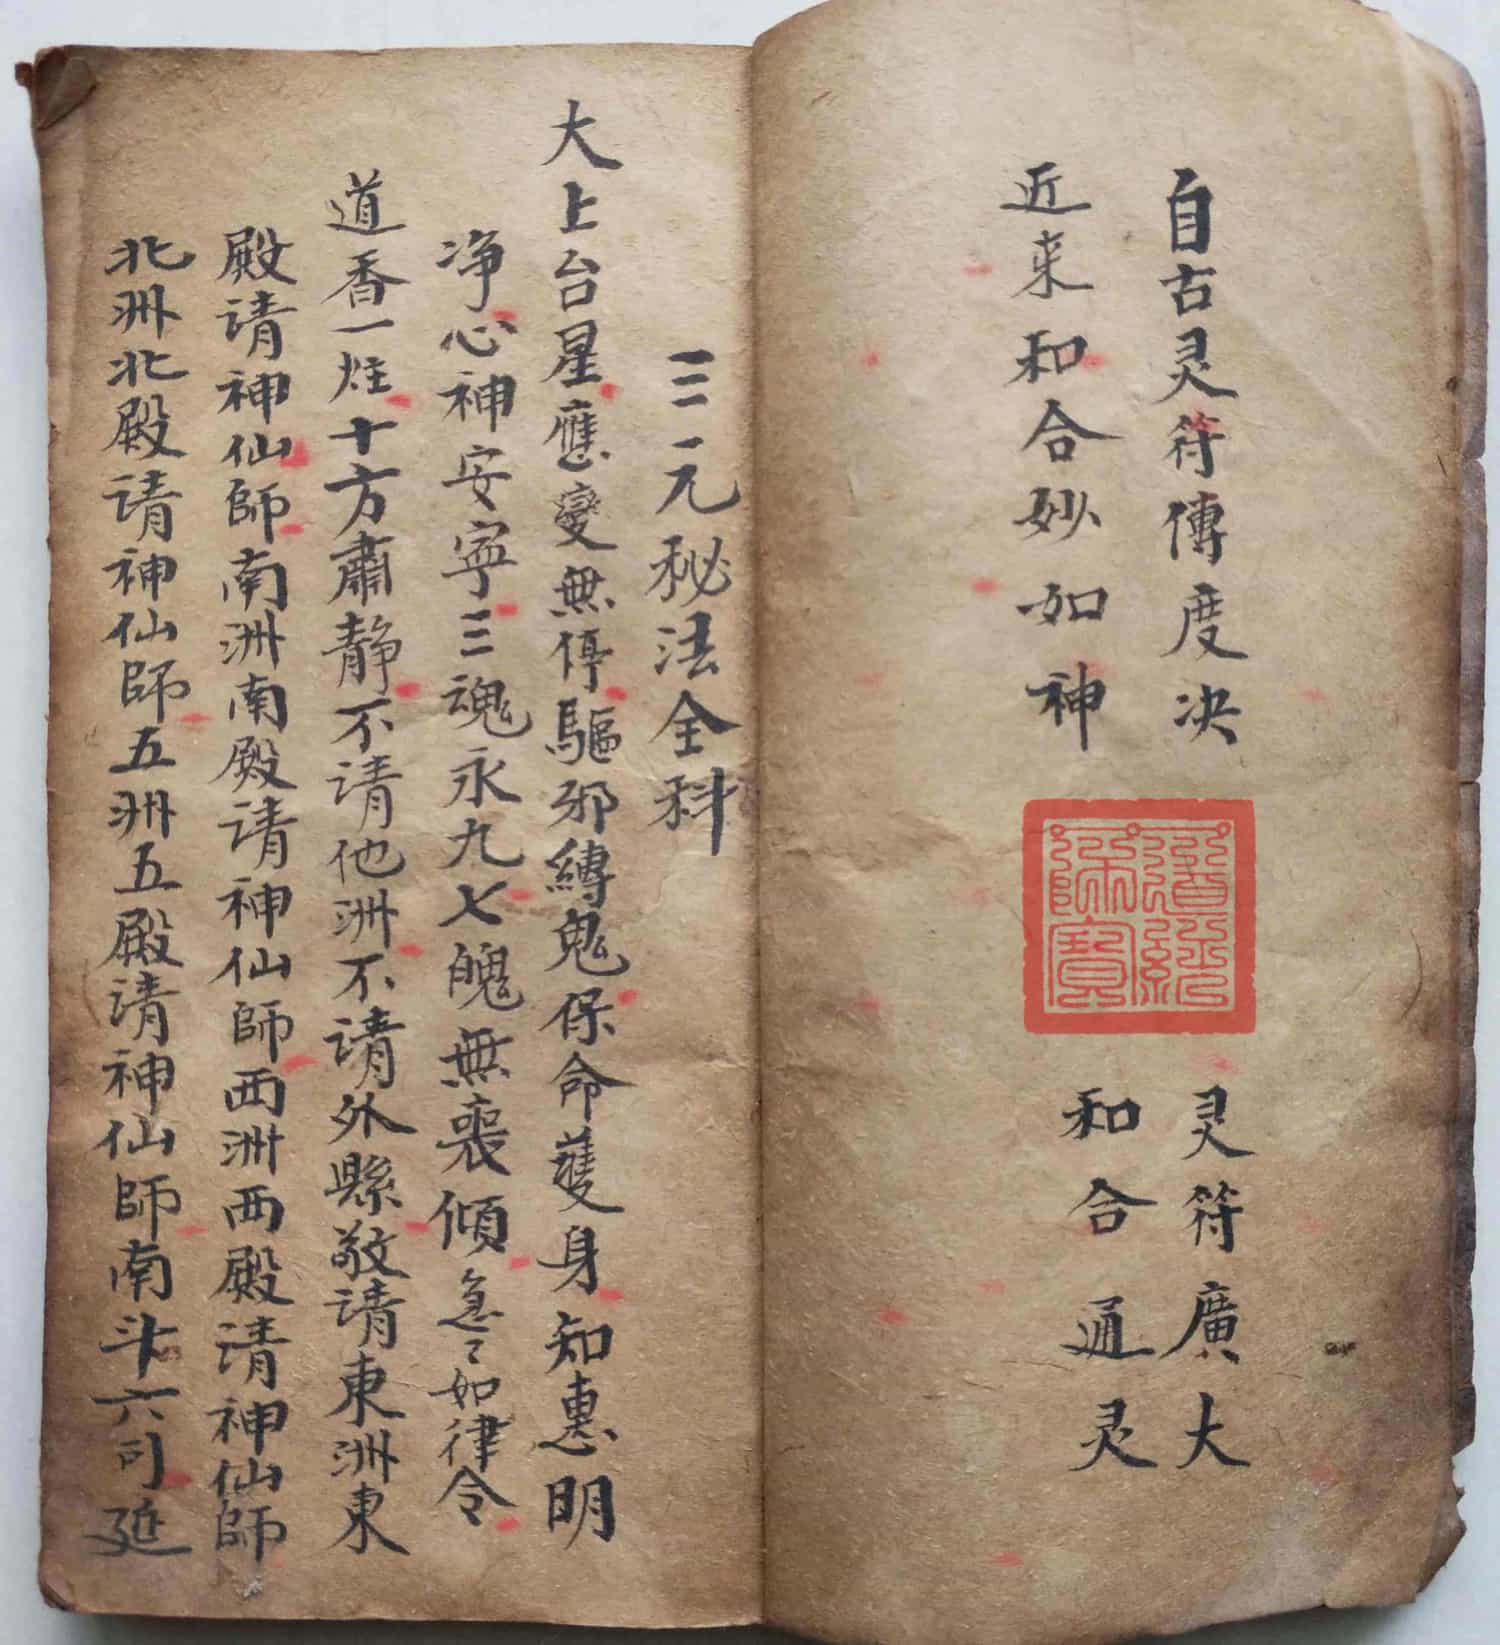 自古灵符傳度决
灵符廣大
近来和合妙如神
和合通灵
道經師寶
三元秘法全科
大上台星應變無停驅邪縛鬼保命護身知惠明
净心神安寧三魂永九七魄無喪傾急〻如律令
道香一炷十方肅静不请他洲不请外縣敬请東洲東
殿请神仙師南洲南殿请神仙師西洲西殿请神仙師
北洲北殿请神仙師五洲五殿请神仙師南斗六司延